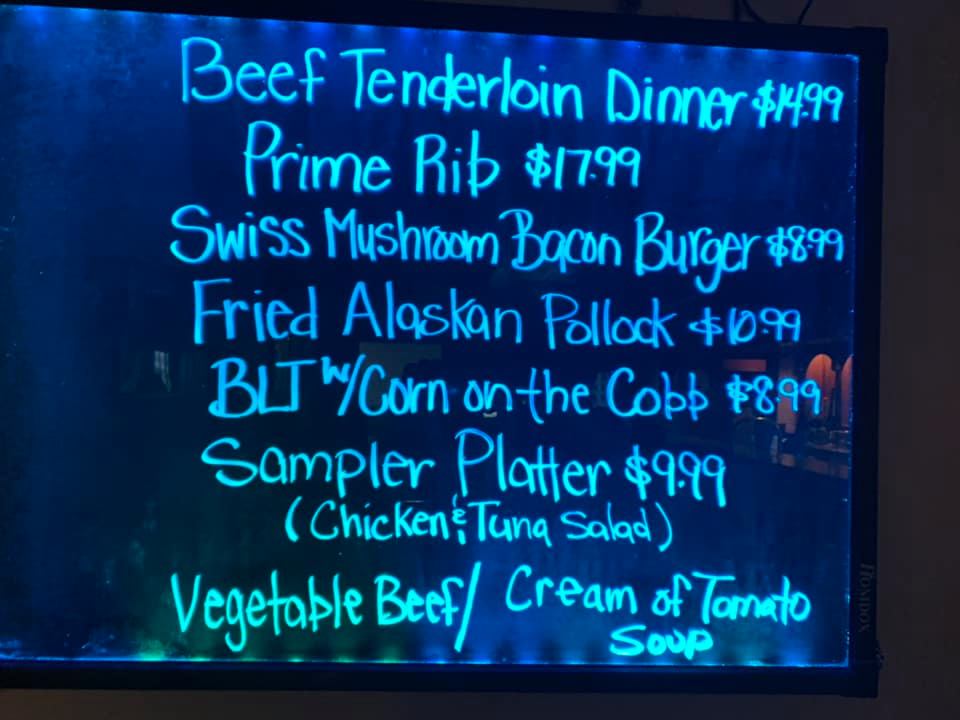 Beef Tenderloin Dinner $14.99
Prime Rib $17.99
Swiss Mushroom Bacon Burger $8.99
Fried Alaskan Pollock $10.99
BLT w/Corn on the Cobb $8.99
Sampler Platter $9.99
(Chicken & Tuna Salad)
Vegetable Beef/ Cream of Tomato
Soup